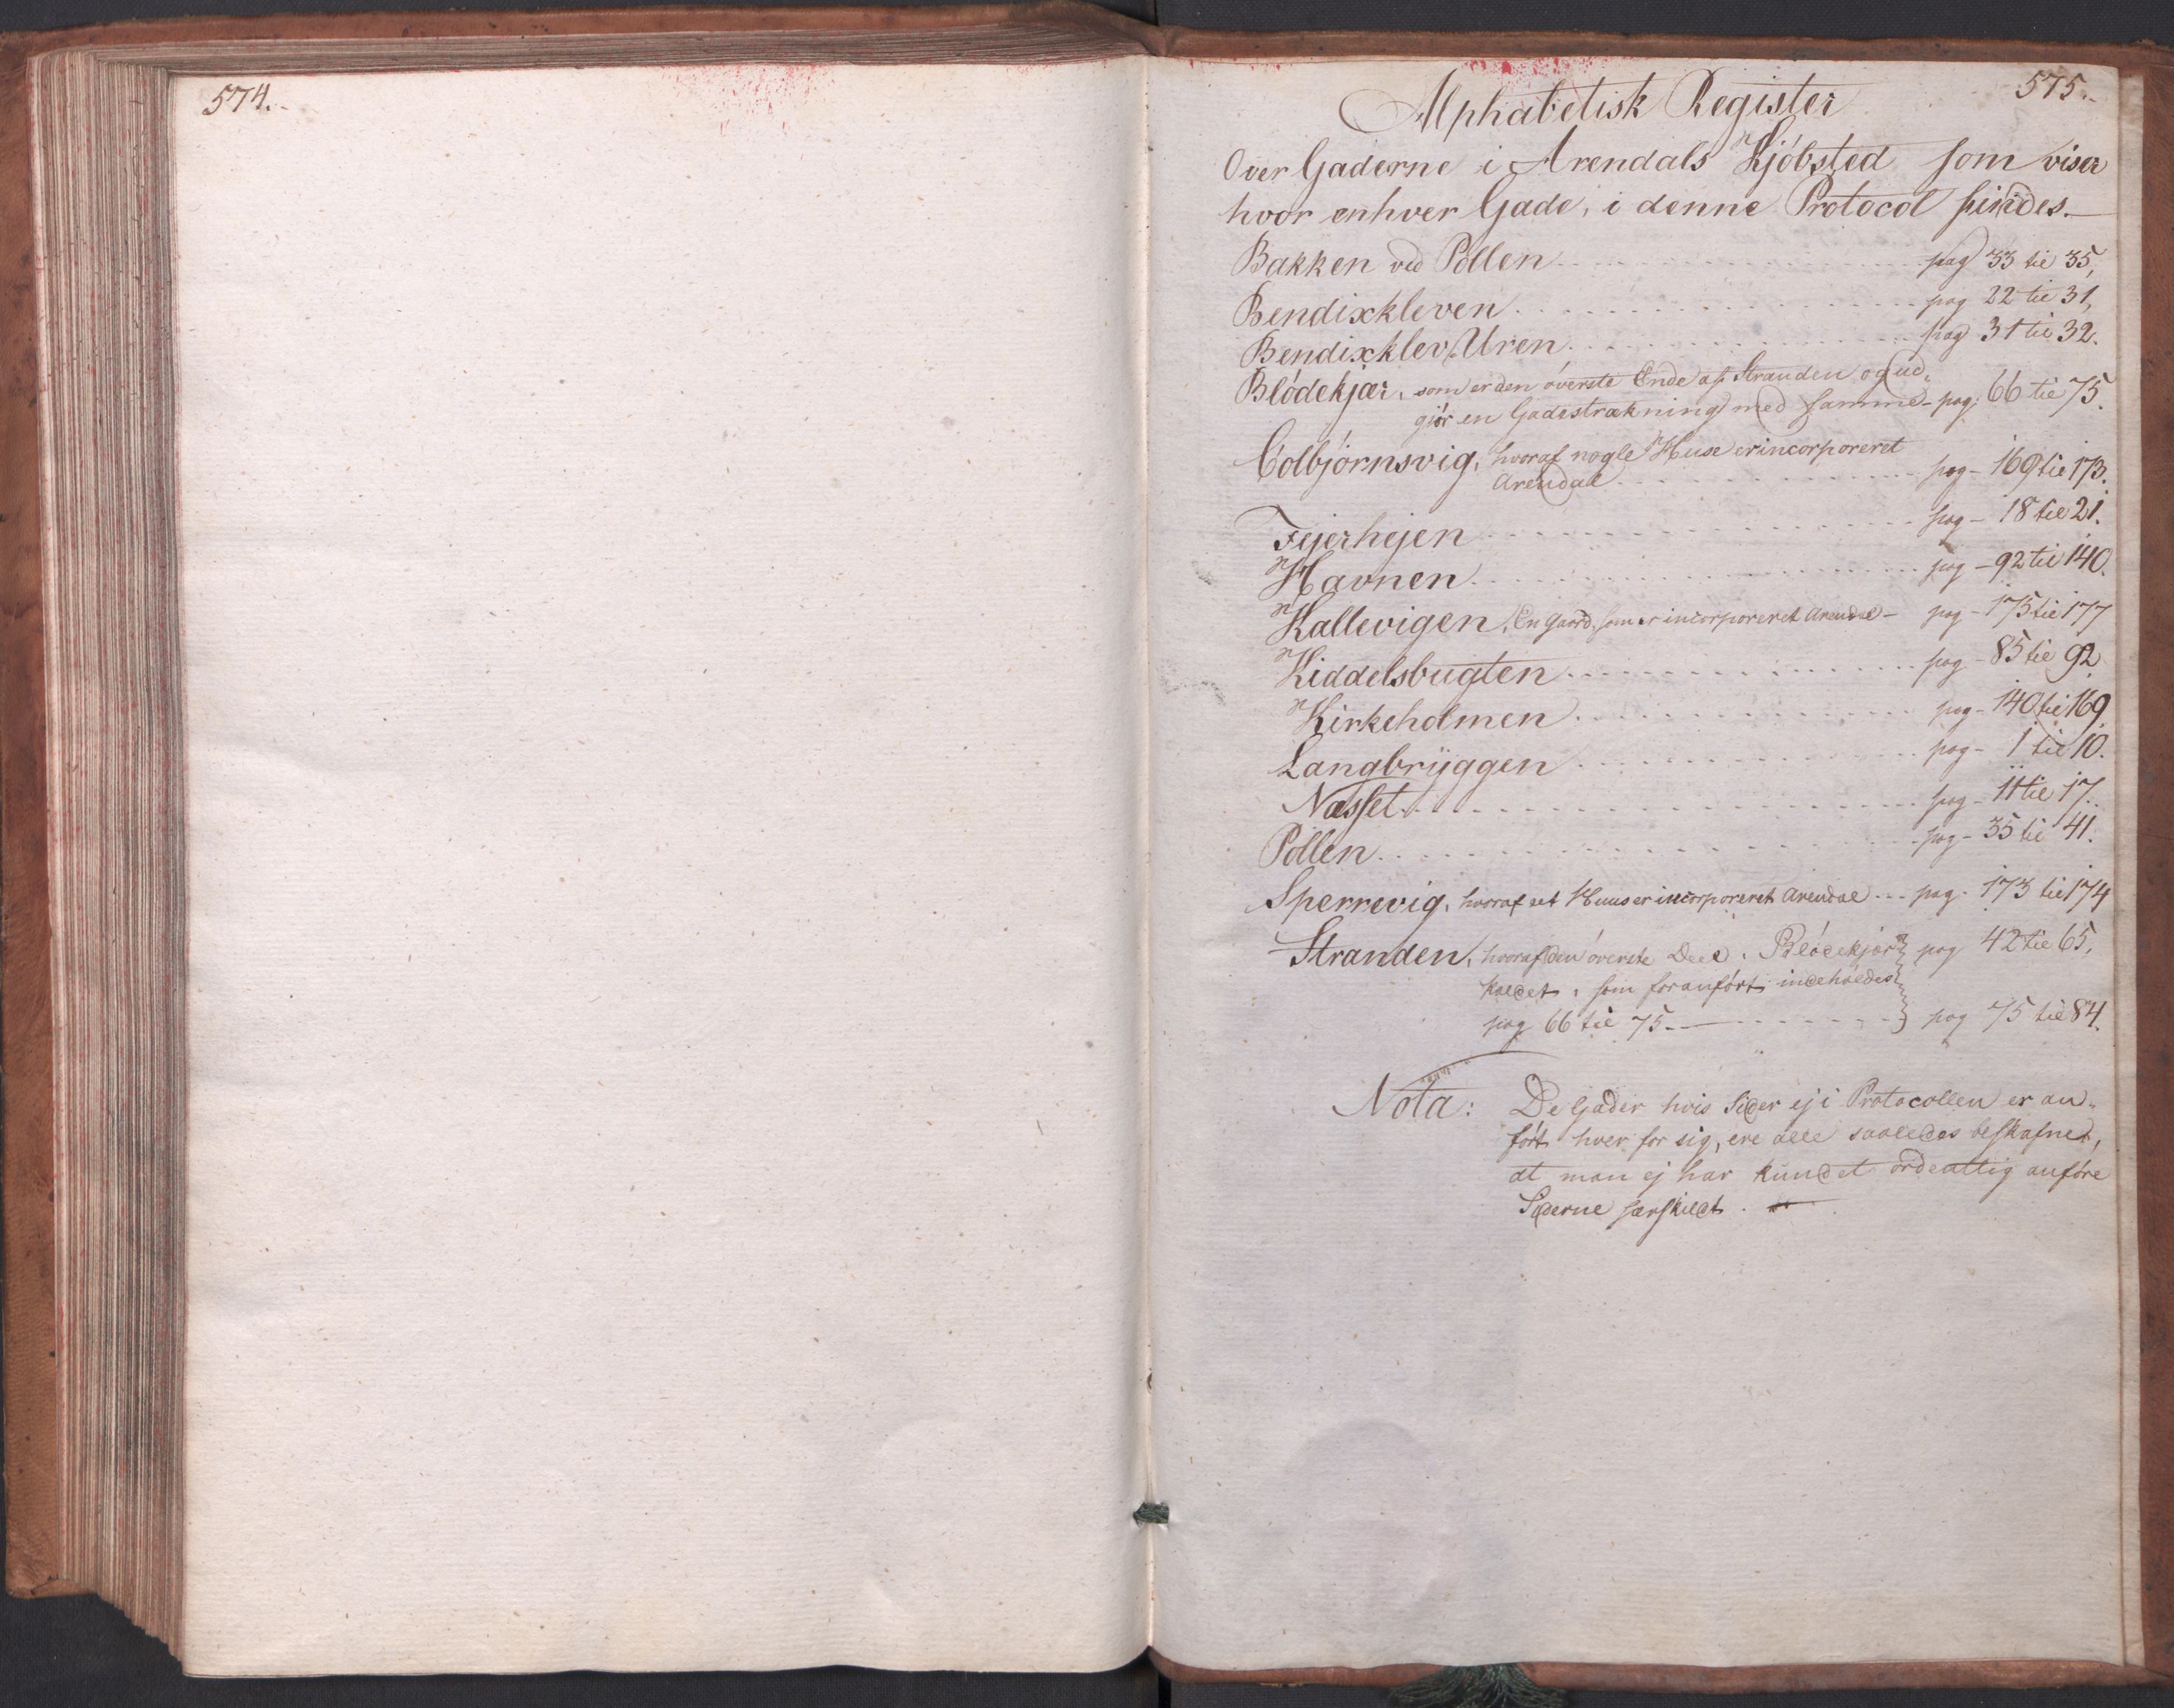 574.
575.
Alphabetisk Register
Over Gaderne i Arendals Kjöbsted som viser
hvor enhver Gade, i denne Protocol findes.
Bakken ved Pollen pag 33 til 35,
Bendixkleven pag 22 til 31,
Bendixklev Uren pag 31 til 32.
Blödekjær, som er den överste Ende af Stranden og ud„
giör en Gadestrækning med samme - pag: 66 til 75.
Colbjörnsvig, hvoraf nogle Huse er incorporeret
Arendal pag - 169 til 173.
Fejerhejen pag - 18 til 21.
Havnen pag - 92 til 140.
Kallevigen, En Gaard, som er incorporeret Arendal - pag - 175 til 177
Kiddelsbugten pag - 85 til 92
Kirkeholmen pag - 140 til 169.
Langbrÿggen pag - 1 til 10.
Næsset pag - 11 til 17.
Pollen pag - 35 til 41.
Sperrevig, hvoraf et Huus er incorporeret Arendal pag - 173 til 174
Stranden, hvoraf den överste Deel, Blödekjær pag 42 til 65,
kaldet, som foranfört indeholdes
pag 66 til 75 pag 75 til 84.
Nota: De Gader hvis Sider ej i Protocollen er an„
fört hver for sig, ere alle saaledes beskafned,
at man ej har kundet ordentlig anföre
Siderne særskildt.